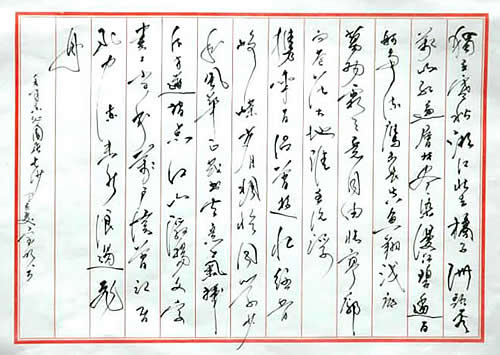 獨立寒秋湘江北去橘子洲頭看
萬山紅遍層林盡染漫江碧透百
舸爭流鷹擊長空魚翔淺底
萬物霜天競自由悵寥廓
問蒼茫大地誰主沉浮
攜來百侶曾遊憶往昔
崢嶸歲月稠恰同學少
年風華正茂書生意氣揮
斥方遒指點江山激揚文字
糞土當年萬戶侯曾記否
到中流擊水浪遏飛
舟
沁園春長沙